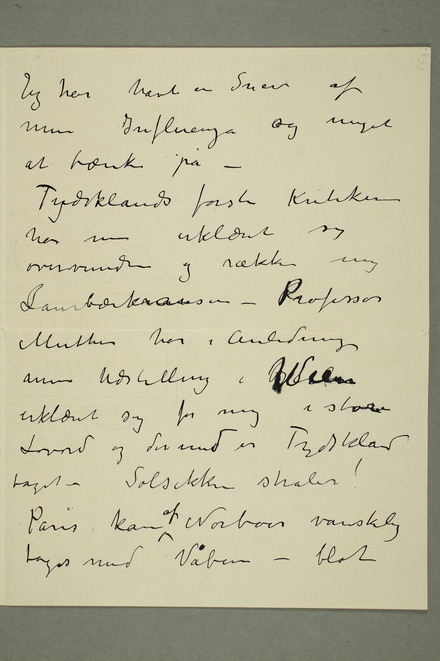 Jeg har havt en Snev af
min Influenza og meget
at tænke på –
Tydsklands første Kritiker
har nu erklæret sig
overvunden og rækker mig
Laurbærkransen – Professor
Muther har i Anledning
min Udstilling i Wien
erklæret sig for mig i store
Lovord og dermed er Tydskland
taget – Solsikken stråler!
Paris kan af Nordboer vanskelig
tages med Våben – blot